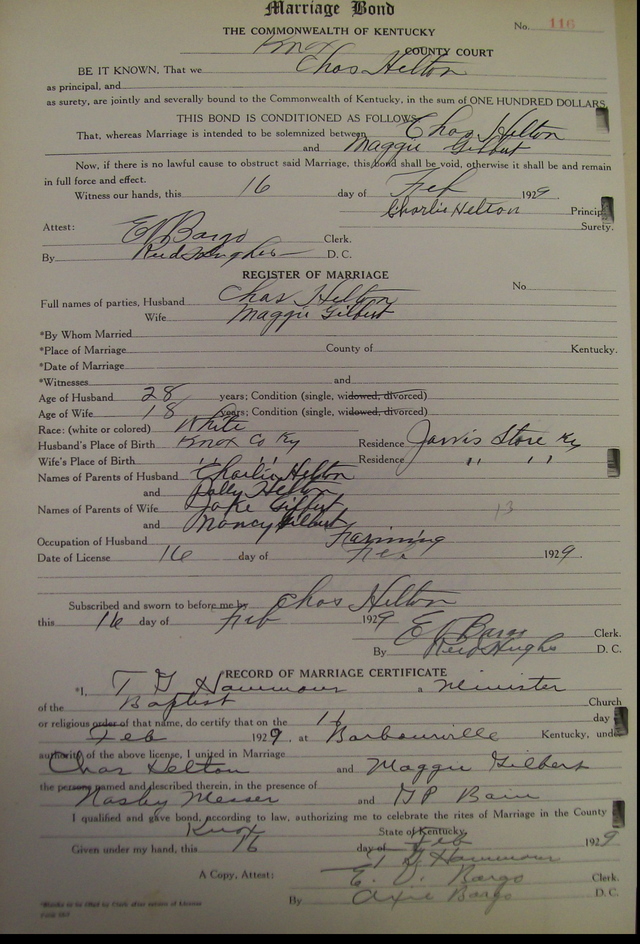 Marriage Bond
THE COMMONWEALTH OF KENTUCKY No. 116
Knox COUNTY COURT
BE IT KNOWN, That we Chas Helton
as principal, and
as surety, are jointly and severally bound to the Commonwealth of Kentucky, in the sum of ONE HUNDRED DOLLARS.
THIS BOND IS CONDITIONED AS FOLLOWS
That, whereas Marriage is intended to be solemnized between Chas Hilton
and Maggie Gilbert
Now, if there is no lawful cause to obstruct said Marriage, this bond shall be void, otherwise it shall be and remain
in full force and effect.
Witness our hands, this 16 day of Feb 1929
Charlie Helton Princip
Surety.
Attest: E V Bargo Clerk.
By Reid Hughes D. C.
REGISTER OF MARRIAGE
No
Full names of parties, Husband Chas Hilton
Wife Maggie Gilbert
*By Whom Married
*Place of Marriage County of Kentucky.
*Date of Marriage
*Witnesses and
Age of Husband 28 years; Condition (single, widowed, divorced)
Age of Wife 18 years; Condition (single, widowed, divorced)
Race: (white or colored) White
Husband's Place of Birth Knox Co Ky Residence Jarvis Store Ky
Wife's Place of Birth " " " Residence " " "
Names of Parents of Husband Charlie Helton
and Helton
Names of Parents of Wife Jake Gilbert
and Nancy Gilbert
13
Occupation of Husband Farming
Date of License 16 day of Feb 1929.
Subscribed and sworn to before me by Chas Hilton
this 16 day of Feb 1929
E V Bargo Clerk.
By Reid Hughes D. C.
RECORD OF MARRIAGE CERTIFICATE
*I, T G Hammons a Minister
of the Baptist Church
or religious order of that name, do certify that on the 16 day
Feb 1929. at Barbourville Kentucky, unde
authority of the above license, I united in Marriage
Chas Helton and Maggie Gilbert
the persons named and described therein, in the presence of
Messer and G P Bain
I qualified and gave bond, according to law, authorizing me to celebrate the rites of Marriage in the County
Knox State of Kentucky.
Given under my hand, this 16 day of Feb 1929
T G Hammons
A Copy, Attest: E. V. Bargo Clerk.
By Bargo D. C.